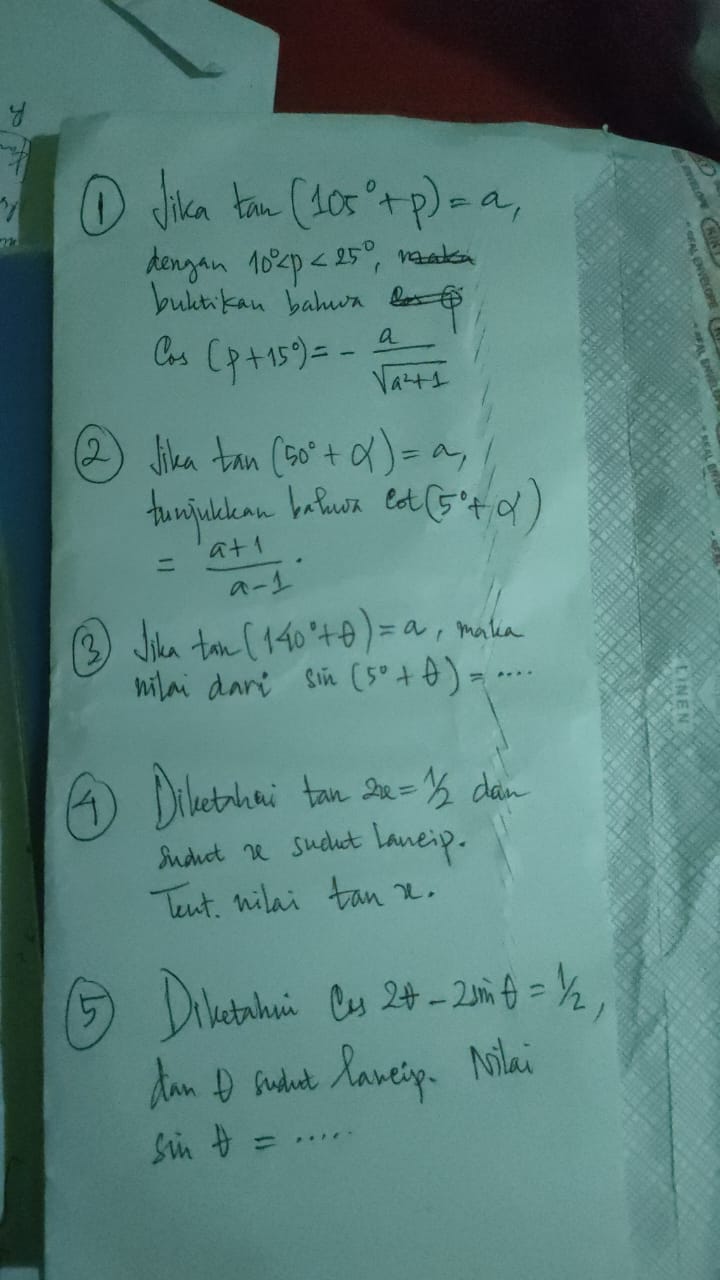 ① Jika tan (105° + p) = a,
dengan 10° < p < 25°, maka
buktikan bahwa
Cos (p + 15°) = - a / √(a² + 1)
② Jika tan (50° + α) = a,
tunjukkan bahwa Cot (5° + α)
= (a + 1) / (a - 1).
③ Jika tan (140° + θ) = a, maka
nilai dari sin (5° + θ) = ....
④ Diketahui tan 2x = 1/2 dan
sudut x sudut lancip.
Tent. nilai tan x.
⑤ Diketahui Cos 2θ - 2 sin θ = 1/2,
dan θ sudut lancip. Nilai
sin θ = .....
LINEN